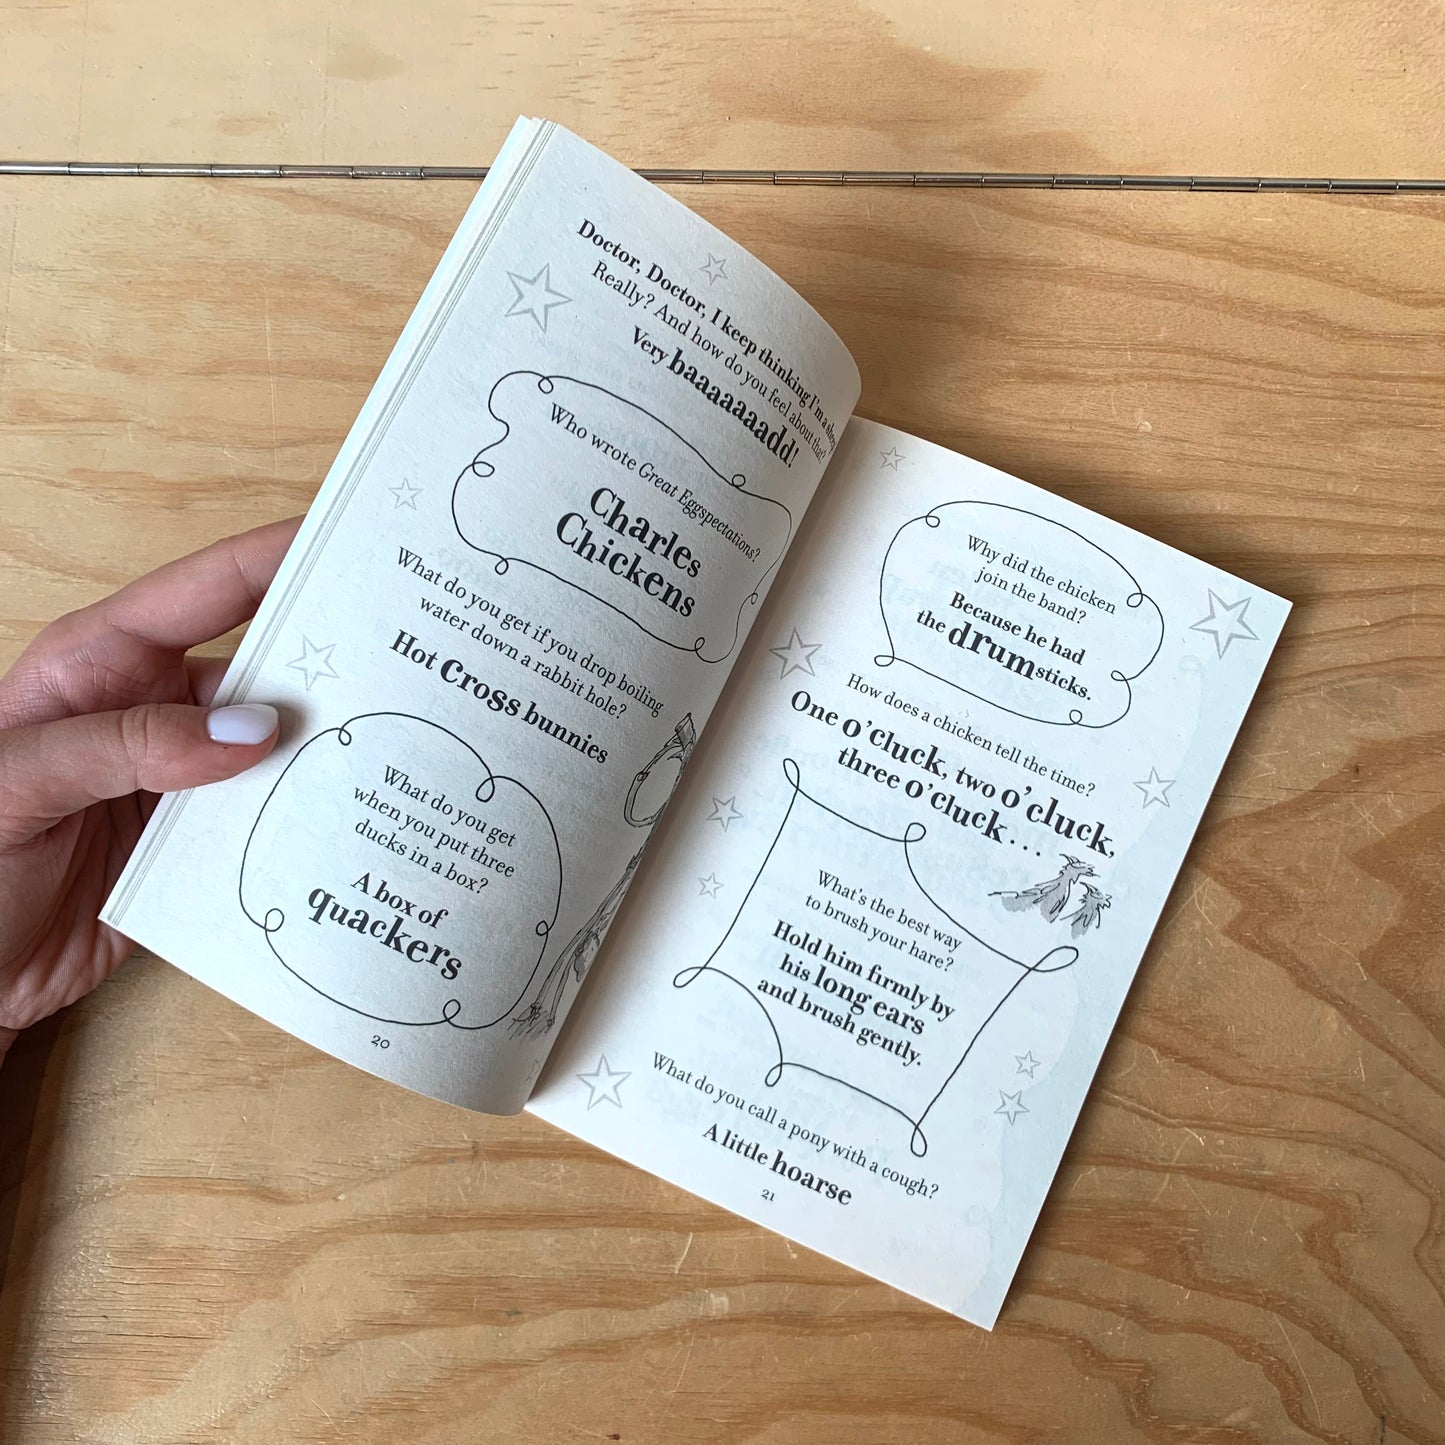 Doctor, Doctor, I keep thinking I'm a sheep
Really? And how do you feel about that?
Very baaaaaaadd!
Who wrote Great Eggspectations?
Charles
Chickens
What do you get if you drop boiling
water down a rabbit hole?
Hot Cross bunnies
What do you get
when you put three
ducks in a box?
A box of
quackers
20
Why did the chicken
join the band?
Because he had
the drumsticks.
How does a chicken tell the time?
One o'cluck, two o'cluck,
three o'cluck...
What's the best way
to brush your hare?
Hold him firmly by
his long ears
and brush gently.
What do you call a pony with a cough?
A little hoarse
21